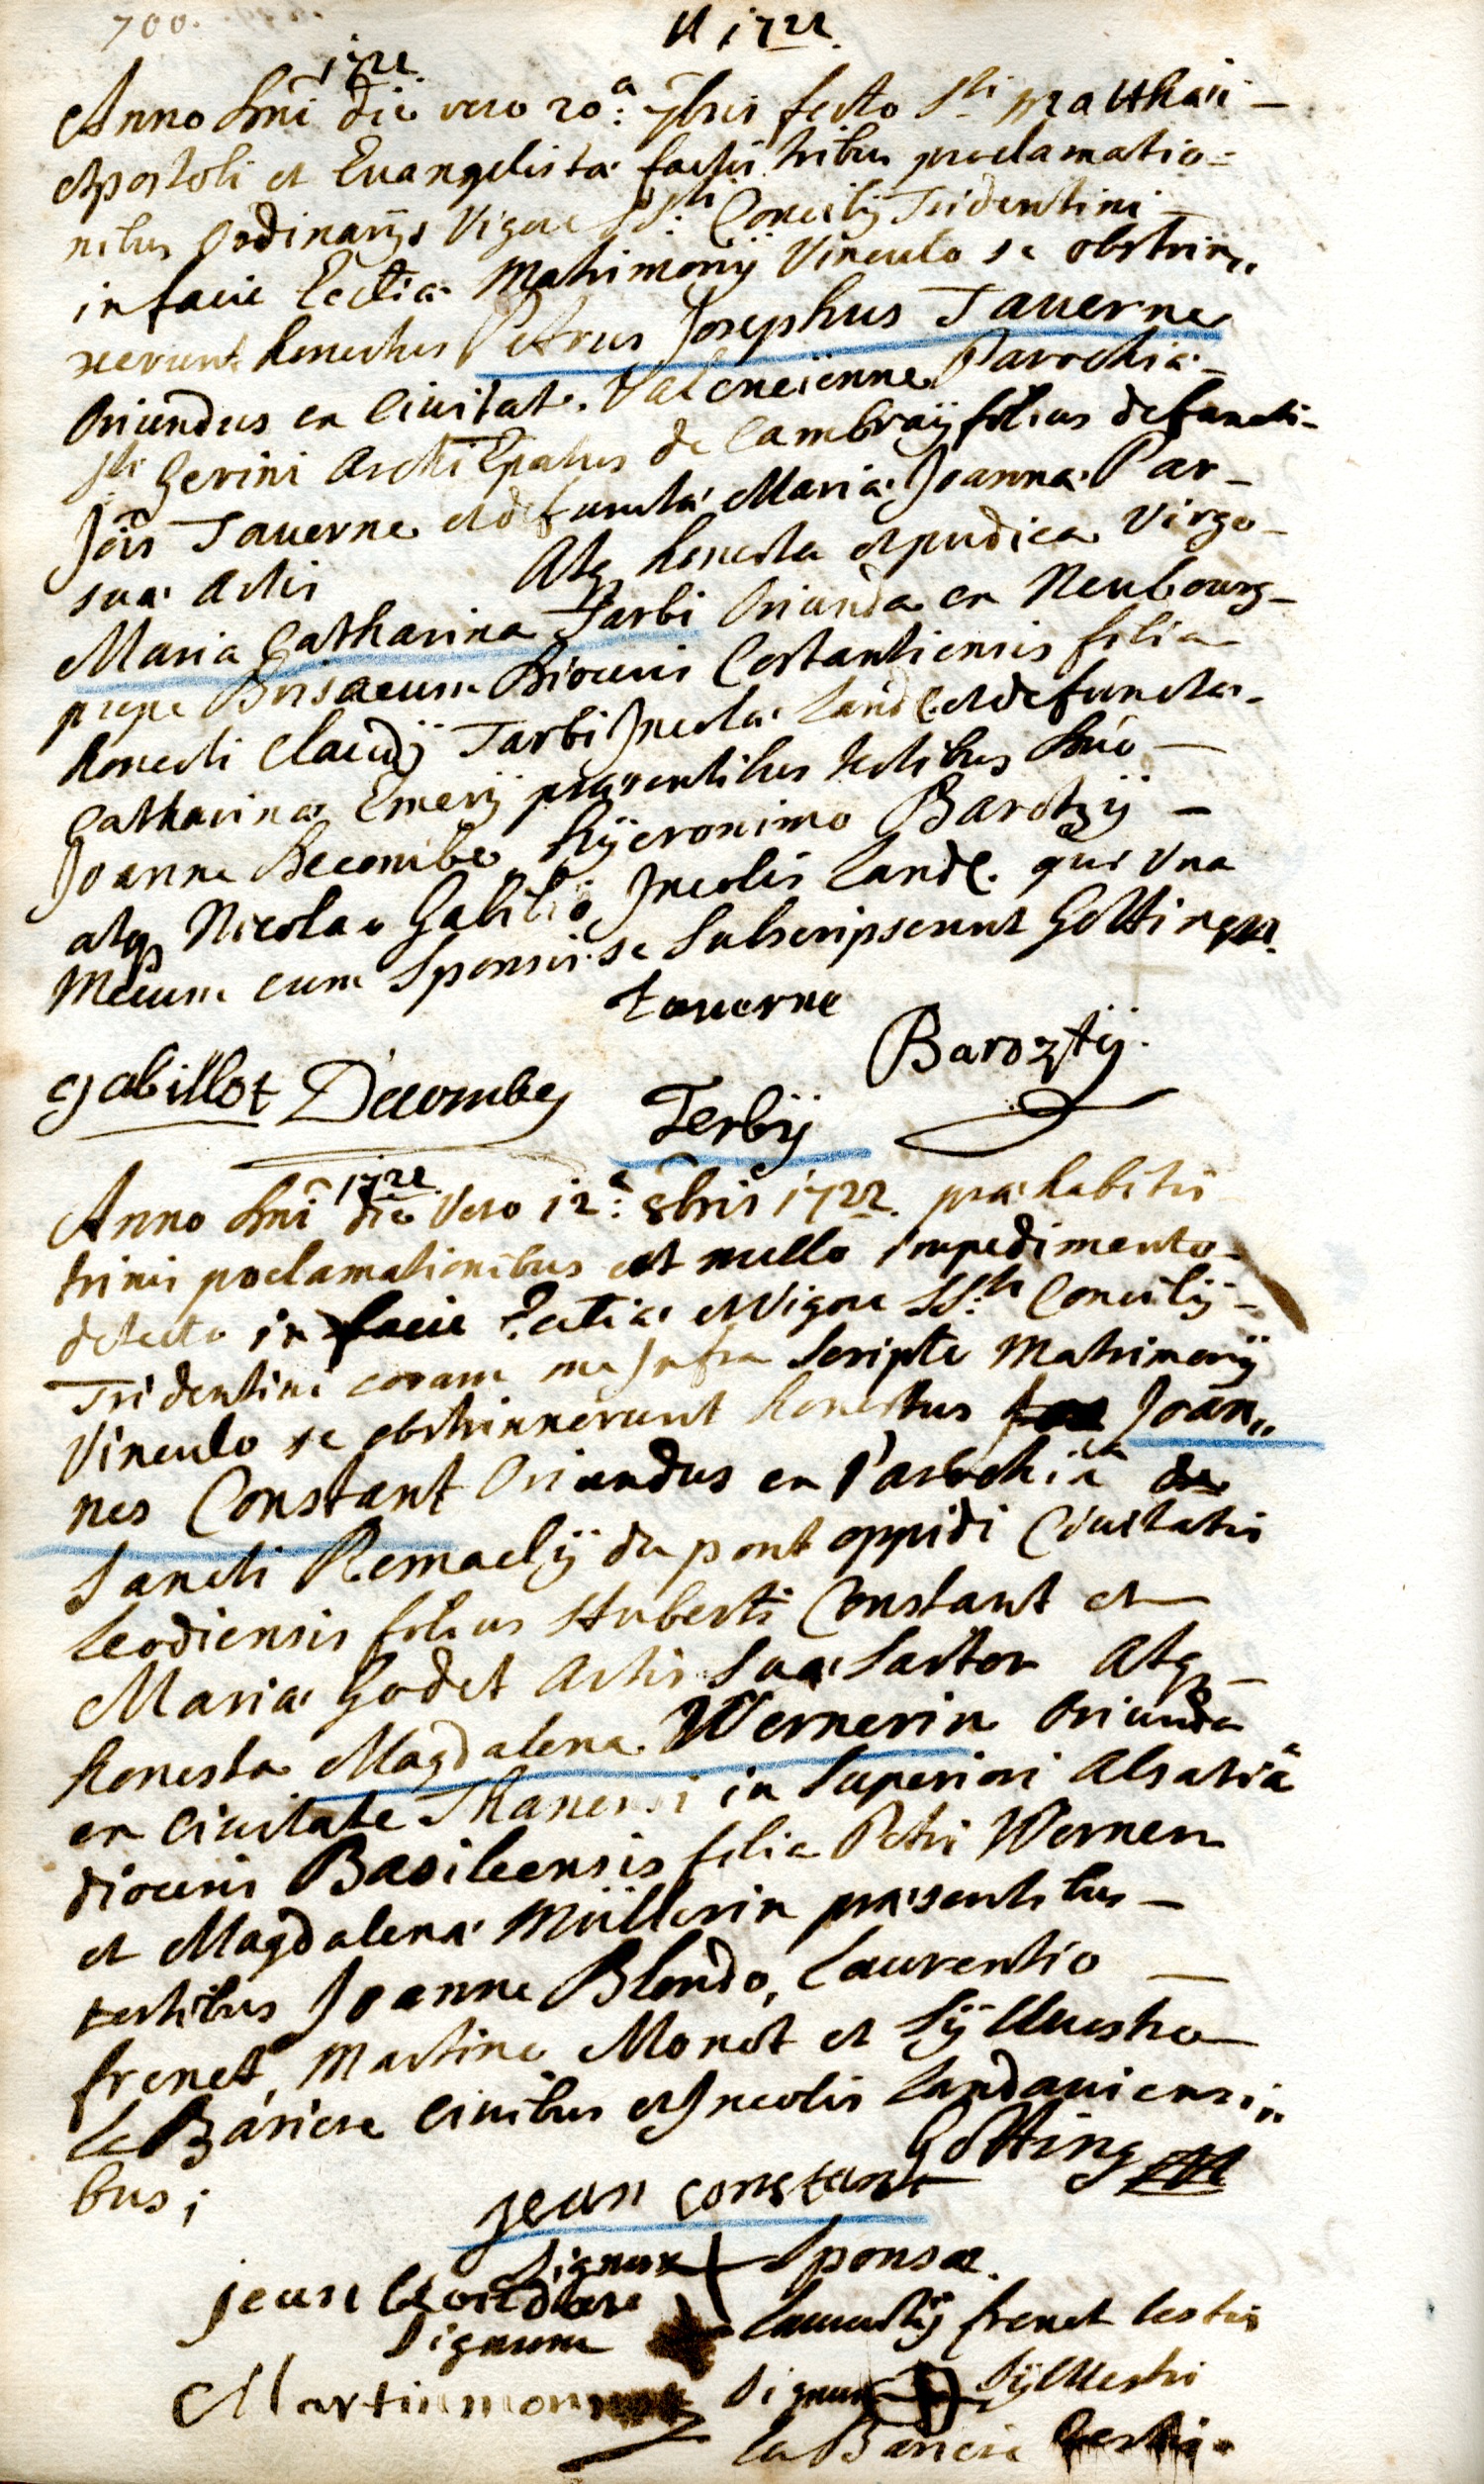 700.
A 1722.
1722
Anno Dni die vero 20a: 7bris festo Sti Matthaei
Apostoli et Evangelistae factis tribus proclamatio=
nibus Ordinarijs Vigore SSti Concilij Tridentini
in facie Eccliae Matrimonij Vinculo se obstrin„
xerunt honestus Petrus Josephus Taverne
Oriundus ex Civitate Valencienne Parochiae
Sti Gerini ArchiEpatus de Cambraÿ filius defuncti
Jois Taverne et defunctae Mariae Joannae Par-
suae Artis Atq honesta et pudica Virgo
Maria Catharina Tarbi Oriunda ex Neubourg
prope Brisacum Dioecesis Costantiensis filia
honesti Claudij Tarbi Incolae Land. et defunctae
Catharinae Emerij praesentibus testibus Dno
Joanne Decombe, Hÿeronimo Barotzij
atq Nicolao Gabillo Incolis Land. qui Una
Mecum cum Sponsis se Subscripserunt Götting
taverne
Baroztij.
gabillot Decombes
Terbij
1722
Anno Dni die Vero 12a: 8bris 1722. praehabitis
trinis proclamationibus et nullo impedimento
detecto in facie Eccliae et Vigore SSti Concilij
Tridentini coram me Infra Scripto Matrimonij
Vinculo se obstrinxerunt honestus Joan„
nes Constant Oriundus ex Parochia de
Sancti Remaclij du pont oppidi Civitatis
Leodiensis filius Huberti Constant et
Mariae Godet Artis Suae Sartor Atq
honesta Magdalena Wernerin Oriunda
ex Civitate Thanensi in Superiori Alsatiâ
dioecesis Basileensis filia Petri Werner
et Magdalenae Müllerin praesentibus
testibus Joanne Blondo, Laurentio
frenet, Martino Monet et Sÿlvestro
La Bariere Civibus et Incolis Landaviensi„
bus;
Götting
jean constant
Signum + Sponsae
jean
Signum Laurentij frenet testis
Martin
Signum Sÿlvestri
la Bariere testis